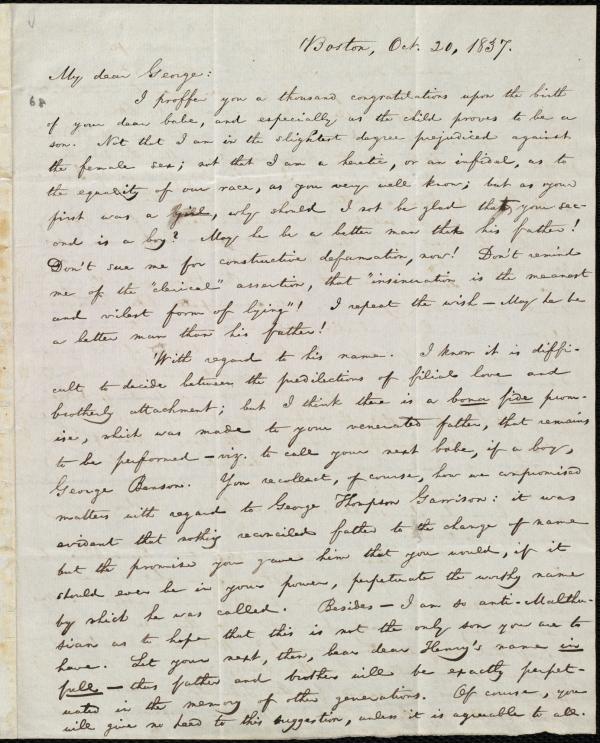 Boston, Oct. 20, 1837.
My dear George:
68
I proffer you a thousand congratulations upon the birth
of your dear babe, and especially as the child proves to be a
son. Not that I am in the slightest degree prejudiced against
the female sex; not that I am a heretic, or an infidel, as to
the equality of our race, as you very well know; but as your
first was a girl, why should I not be glad that your sec-
ond is a boy? May he be a better man than his father!
Don't sue me for constructive defamation, now! Don't remind
me of the "clerical" assertion, that "insinuation is the meanest
and vilest form of lying"! I repeat the wish — May he be
a better man than his father!
With regard to his name. I know it is diffi-
cult to decide between the predilections of filial love and
brotherly attachment; but I think there is a bona fide prom-
ise, which was made to your venerated father, that remains
to be performed — viz. to call your next babe, if a boy,
George Benson. You recollect, of course, how we compromised
matters with regard to George Thompson Garrison: it was
evident that nothing reconciled father to the change of name
but the promise you gave him that you would, if it
should ever be in your power, perpetuate the worthy name
by which he was called. Besides — I am so anti-Malthu-
sian as to hope that this is not the only son you are to
have. Let your next, then, bear dear Henry's name in
full — thus father and brother will be exactly perpet-
uated in the memory of other generations. Of course, you
will give no heed to this suggestion, unless it is agreeable to all.